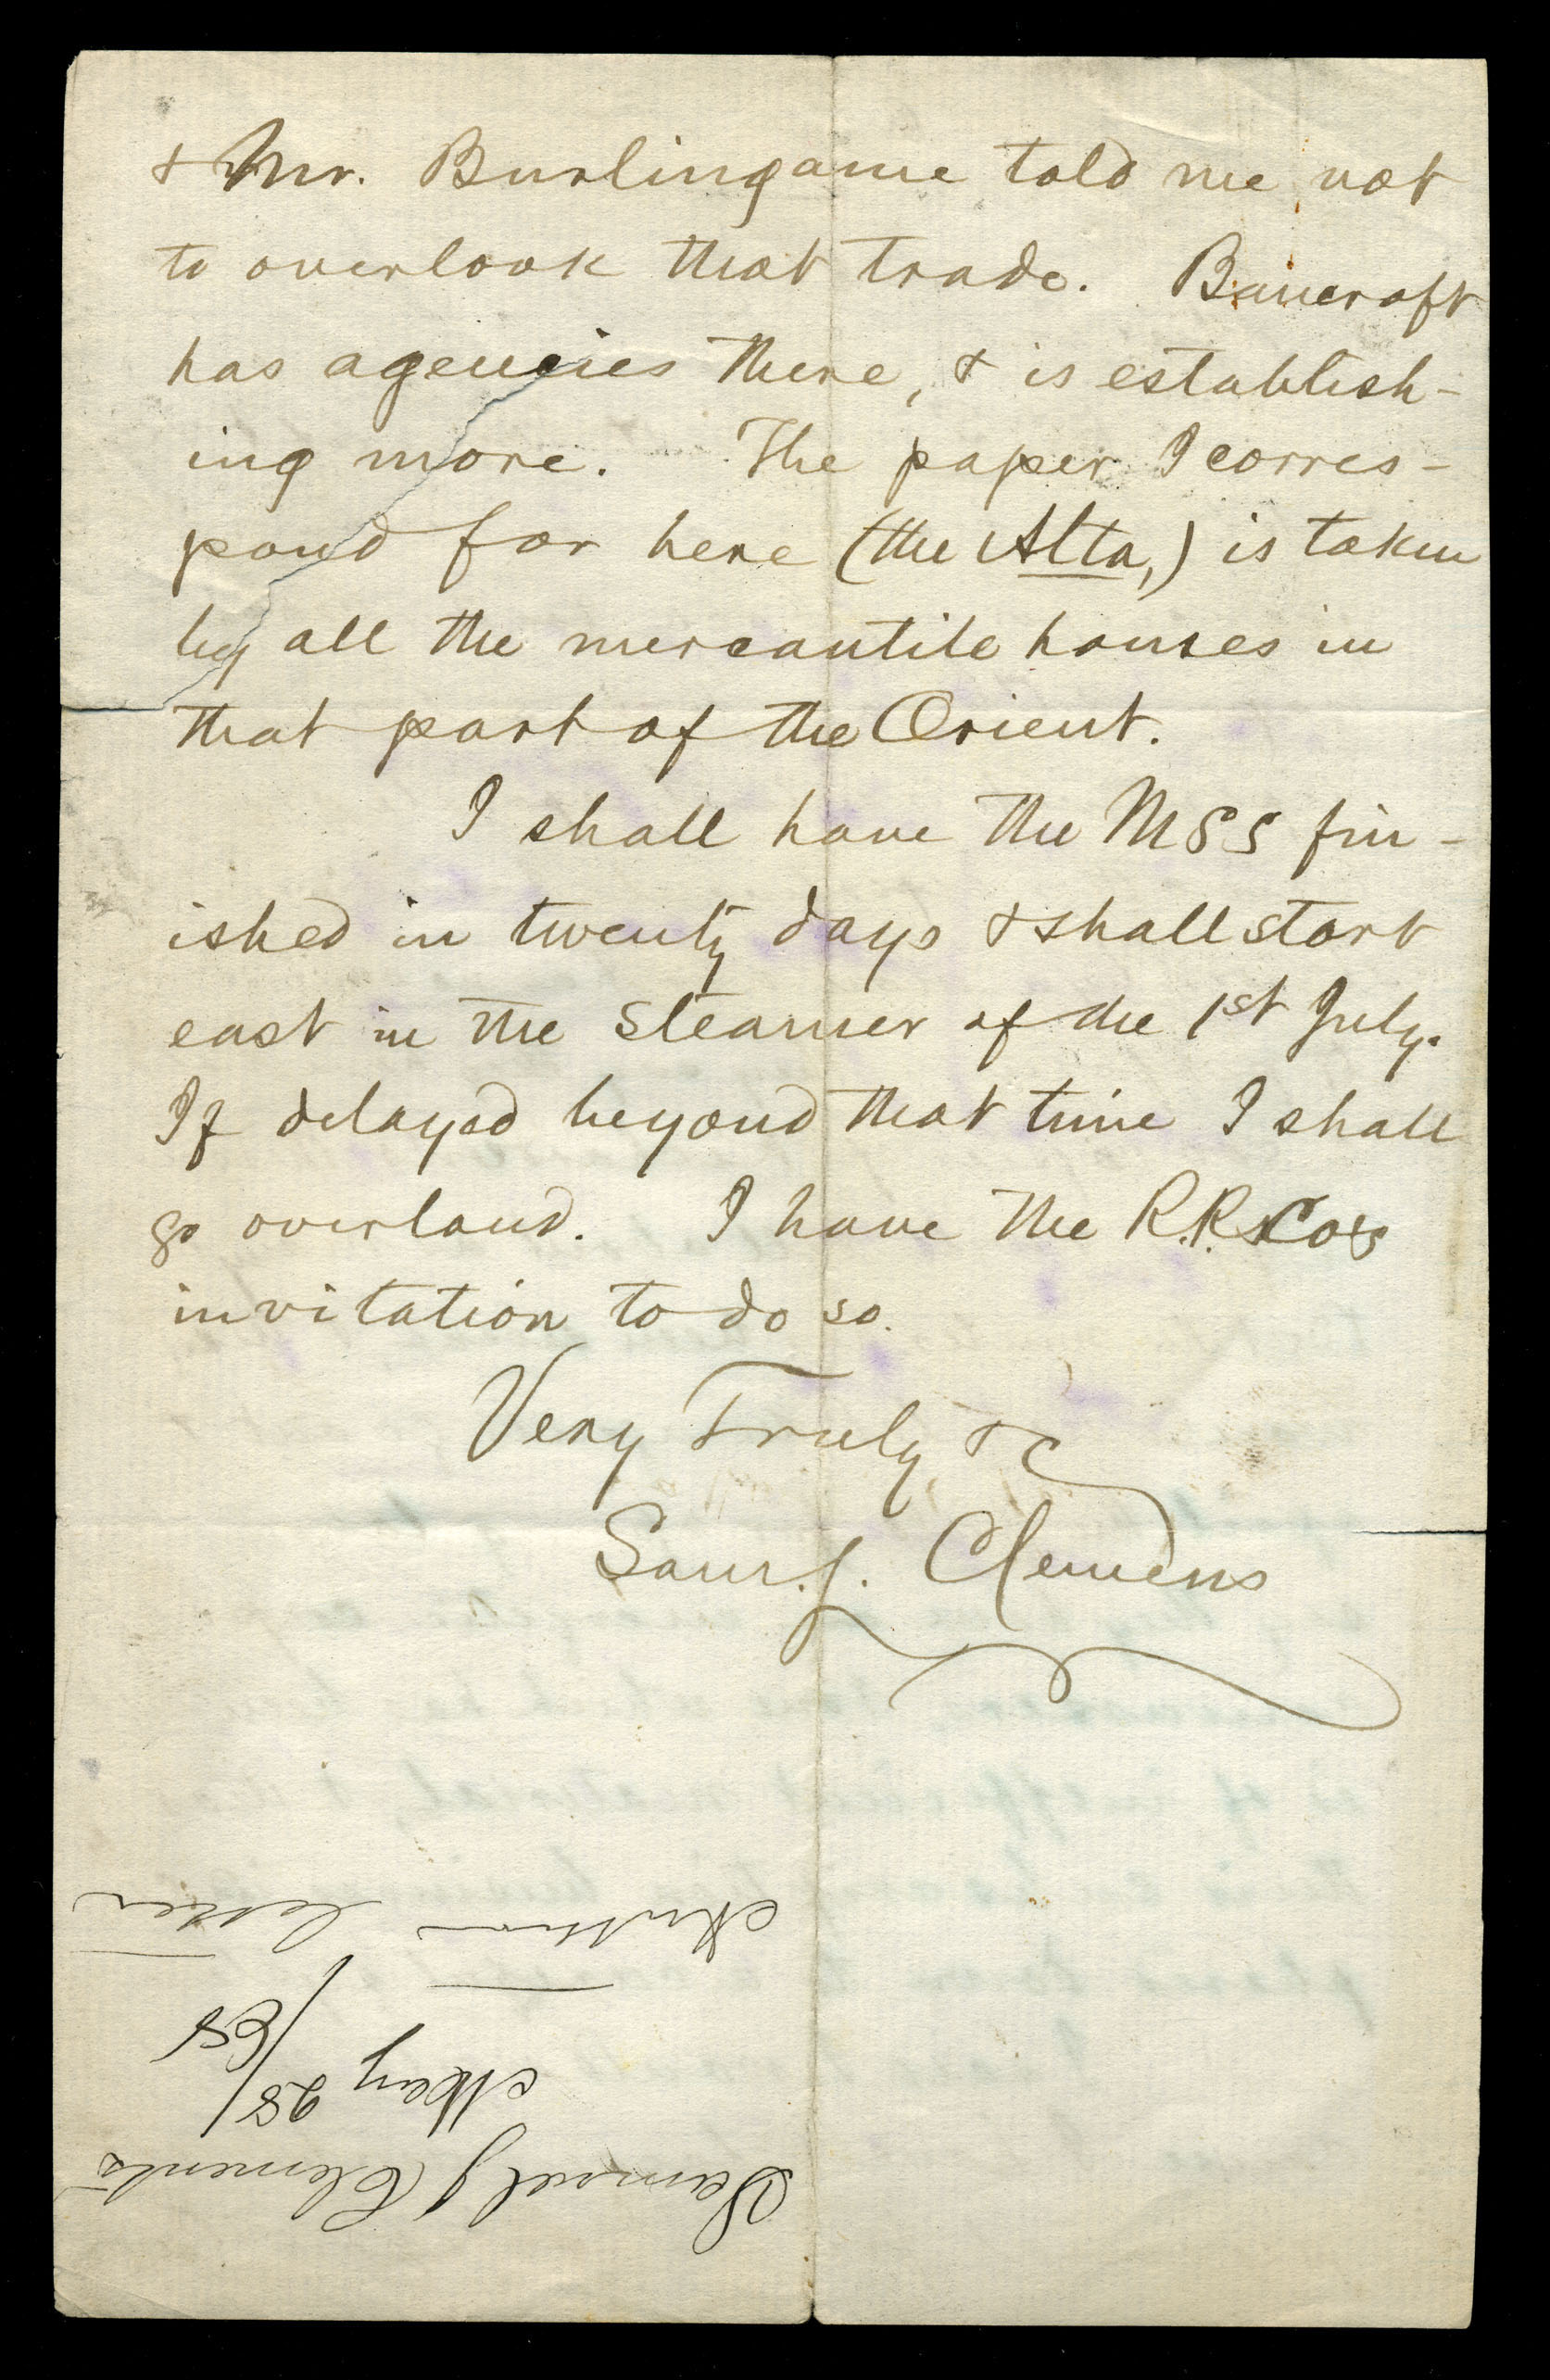 & Mr. Burlingame told me not
to overlook that trade. Bancroft
has agencies there, & is establish-
ing more. The paper I corres-
pond for here (the Alta,) is taken
by all the mercantile houses in
that part of the Orient.
I shall have the MSS fin-
ished in twenty days & shall start
east in the steamer of the 1st July.
If delayed beyond that time I shall
go overland. I have the R.R. Co's
invitation to do so.
Very Truly &c
Sam. L. Clemens
Samuel J Clements
May 28/68
Author letter